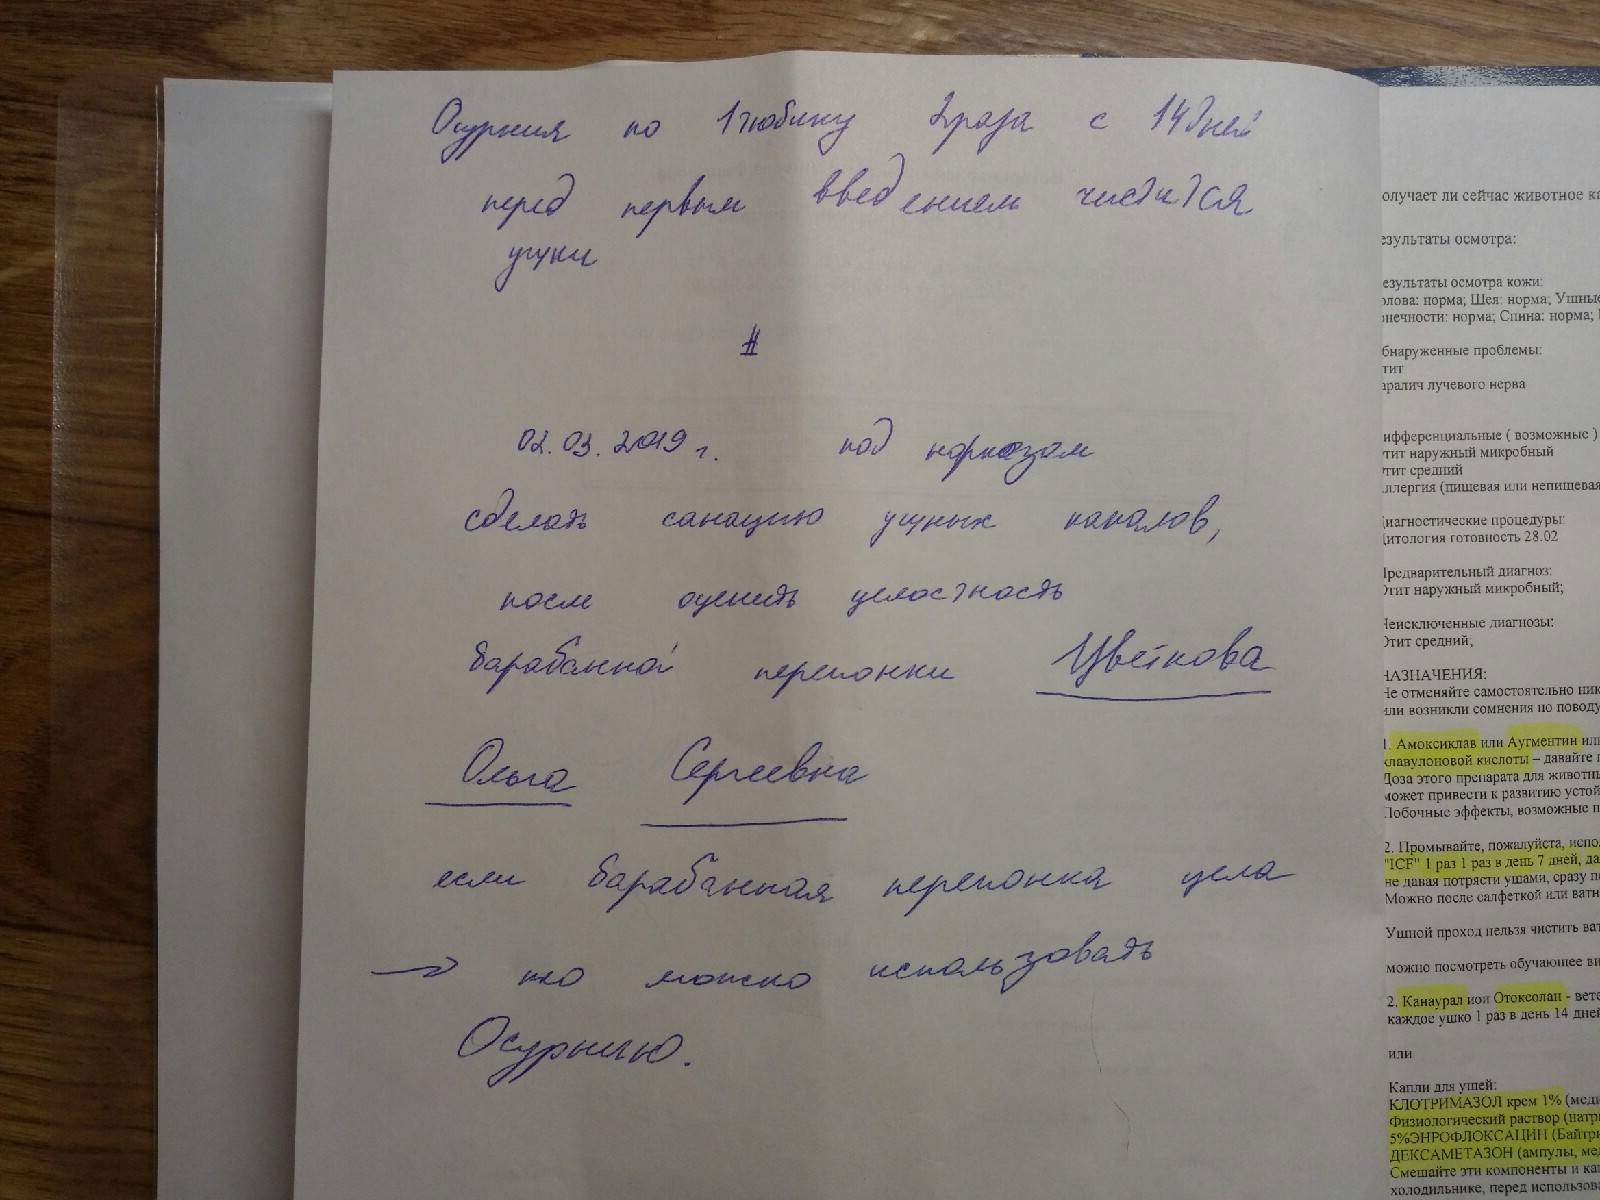 Осурния по 1 тюбику 2 раза с 14 дней
перед первым введением чистятся
ушки
#
02.03.2019 г. под наркозом
сделать санацию ушных каналов,
после оценить целостность
барабанной перепонки Цветкова
Ольга Сергеевна
если барабанная перепонка цела
→ то можно использовать
Осурнию.
олучает ли сейчас животное ка
езультаты осмотра:
езультаты осмотра кожи:
олова: норма; Шея: норма; Ушные
нечности: норма; Спина: норма;
бнаруженные проблемы:
тит
аралич лучевого нерва
ифференциальные ( возможные )
тит наружный микробный
тит средний
ллергия (пищевая или непищевая
иагностические процедуры:
Цитология готовность 28.02
Предварительный диагноз:
Отит наружный микробный;
Неисключенные диагнозы:
Отит средний;
НАЗНАЧЕНИЯ:
Не отменяйте самостоятельно ник
или возникли сомнения по поводу
1. Амоксиклав или Аугментин или
клавулоновой кислоты – давайте п
Доза этого препарата для животны
может привести к развитию устой
Побочные эффекты, возможные п
2. Промывайте, пожалуйста, испо
"ICF" 1 раз 1 раз в день 7 дней, да
не давая потрясти ушами, сразу по
Можно после салфеткой или ватн
Ушной проход нельзя чистить ват
можно посмотреть обучающее ви
2. Канаурал иои Отоксолан - вете
каждое ушко 1 раз в день 14 дней
или
Капли для ушей:
КЛОТРИМАЗОЛ крем 1% (меди
Физиологический раствор (натри
5%ЭНРОФЛОКСАЦИН (Байтри
ДЕКСАМЕТАЗОН (ампулы, мед
Смешайте эти компоненты и ка
холодильнике, перед использова